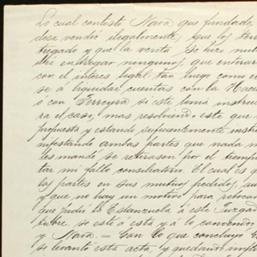 Lo cual contestó Nava que fundada
dose vendió ilegalmente, que los terr
tregado y que la venta se hizo nul
der entregar ninguno, que entrará
con el interés legal tan luego como en
se a liquidar cuentas con la Hac
ó con Ferreyra si este toma instruc
ra el caso, mas resolvió este que
propuesta y estando suficientemente instru
nifestando ambas partes que nada m
les mandó se retirasen por el tiempo
tar mi fallo conciliatorio. El cual es q
las partes en sus mutuos pedidos, au
y que no hay un motivo para
que pidió la Estanzuela a este Juzga
se esté a esta y á lo
y Nava. Con lo que concluyó
se levantó esta acta, y quedando